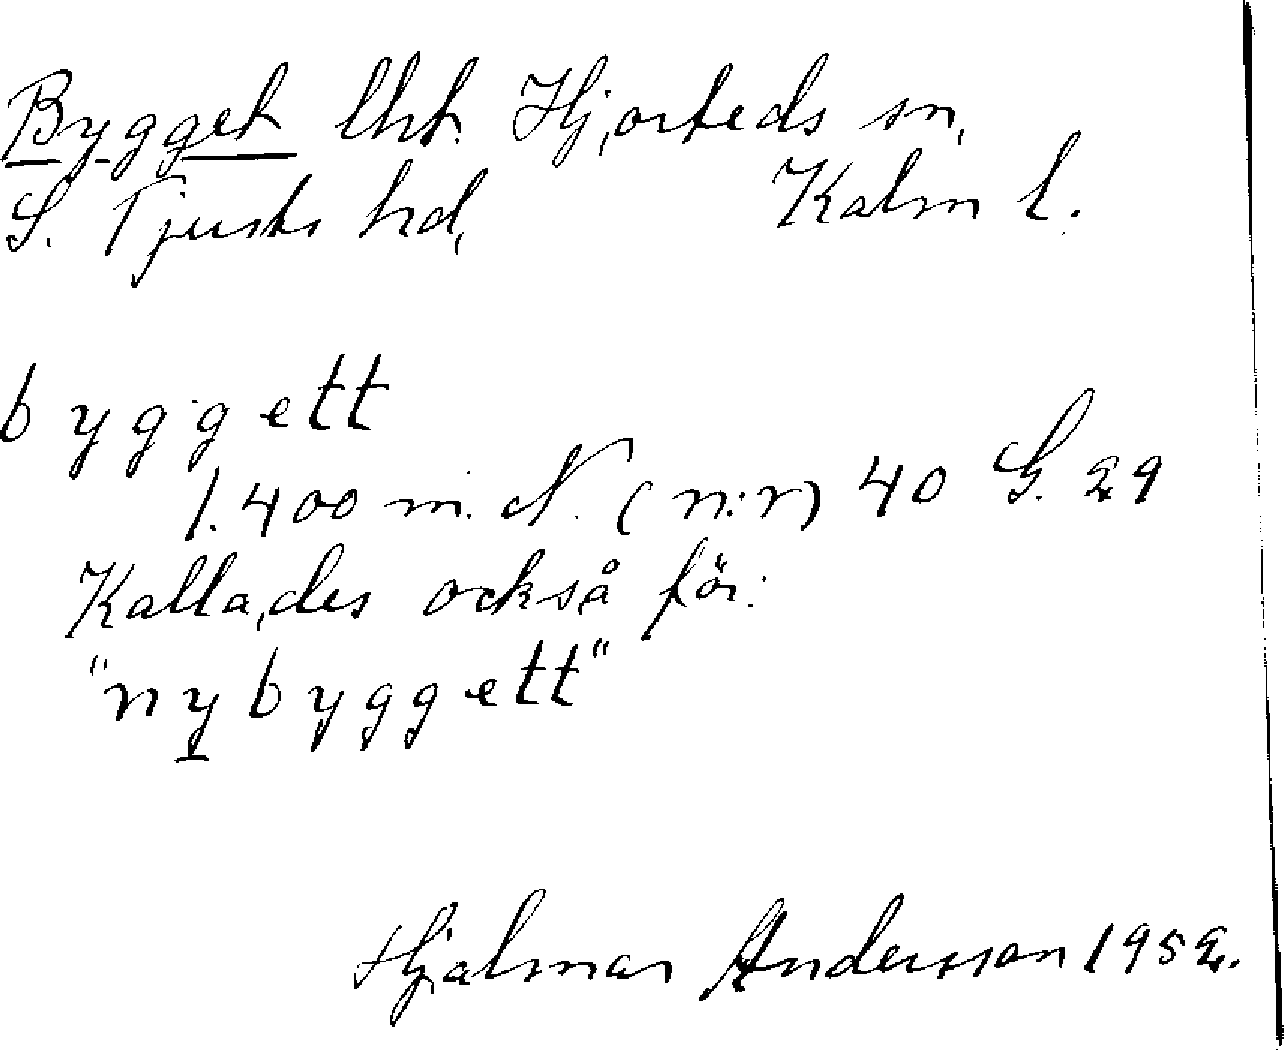 Bygget lht. Hjorteds sn,
S. Tjusts hd, Kalm l.
byggett
1.400 m. N. (n:r) 40 G. 29
Kallades också för:
"nybyggett"
Hjalmar Andersson 1952.